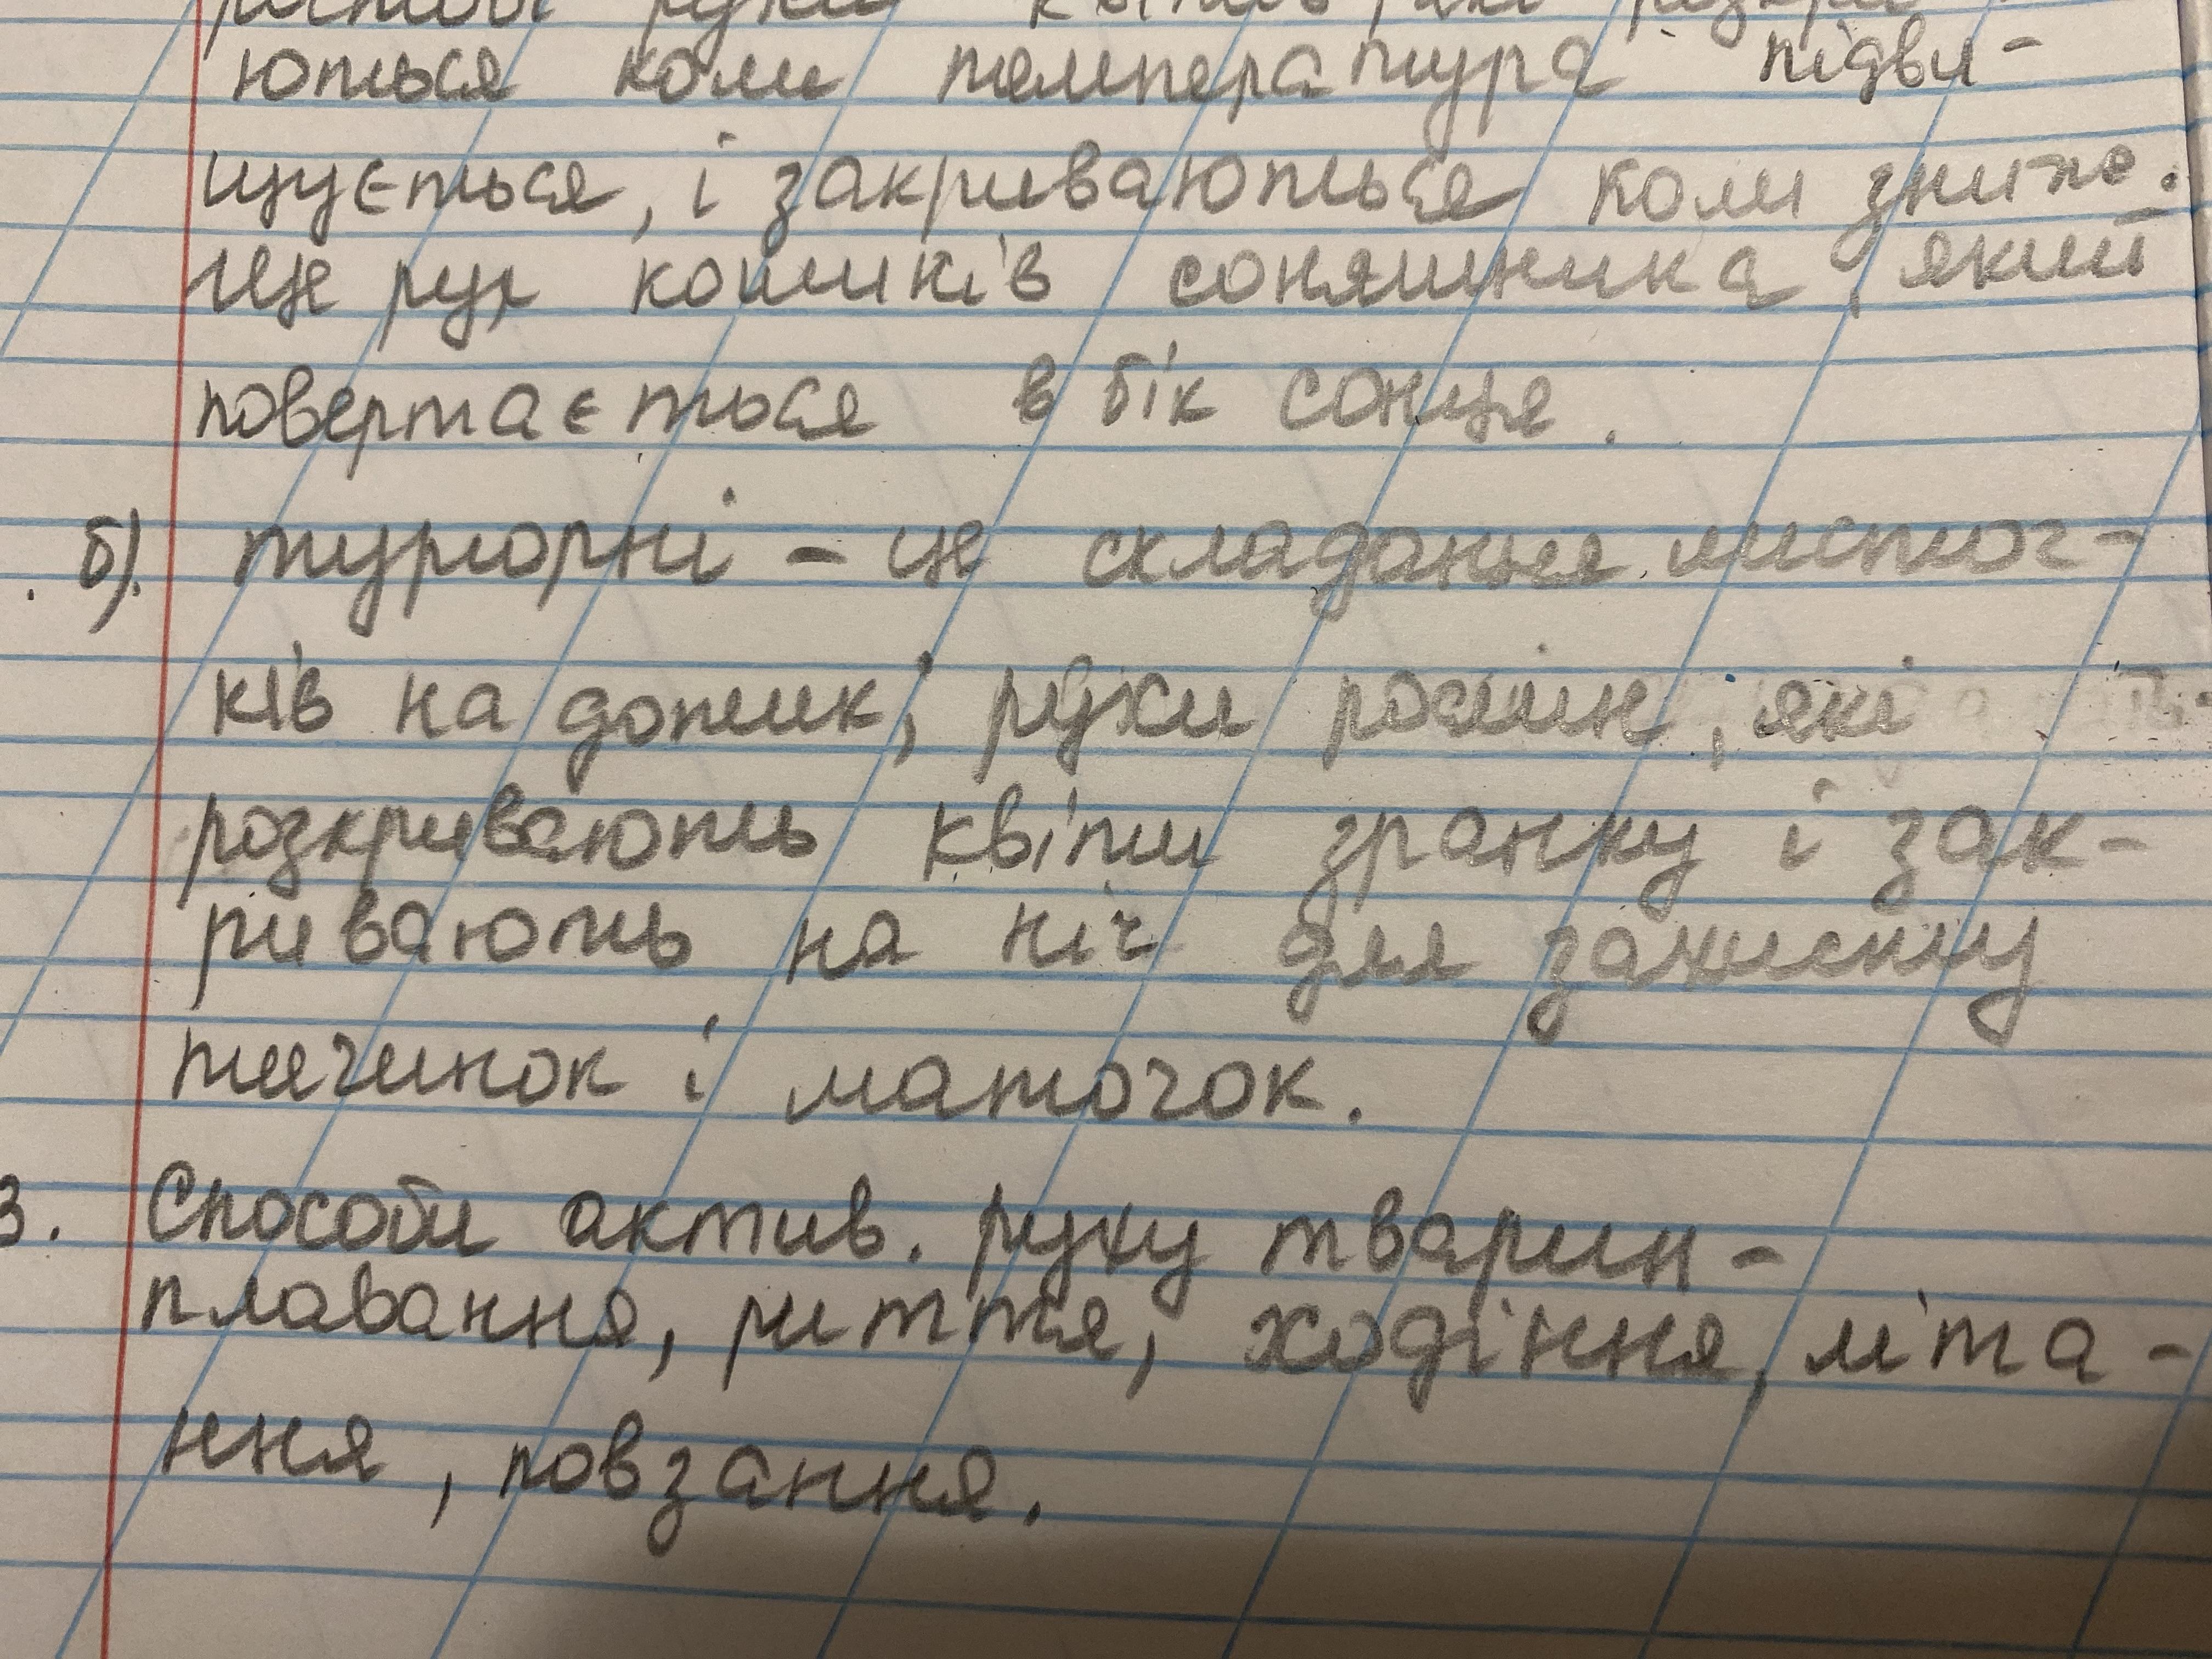 рухи
ються коли температура підви-
щується, і закриваються коли зниже.
Це рух кошиків соняшника, який
повертається в бік сонця.
б). тургорні – це складання листоч-
ків на дотик; рухи рослин, які
розкривають квіти зранку і зак-
ривають на ніч для захисту
тичинок і маточок.
3. Способи актив. руху тварин –
плавання, риття, ходіння, літа-
ння, повзання.